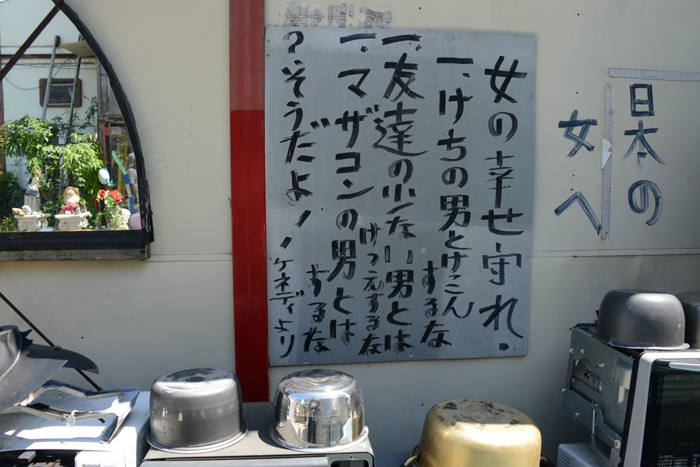 日本の
女へ
女の幸せ守れ.
一、けちの男とけこん
するな
一、友達の少ない男とは
けつえするな
一、マザコンの男とは
するな
?そうだよ!!
ケネディより